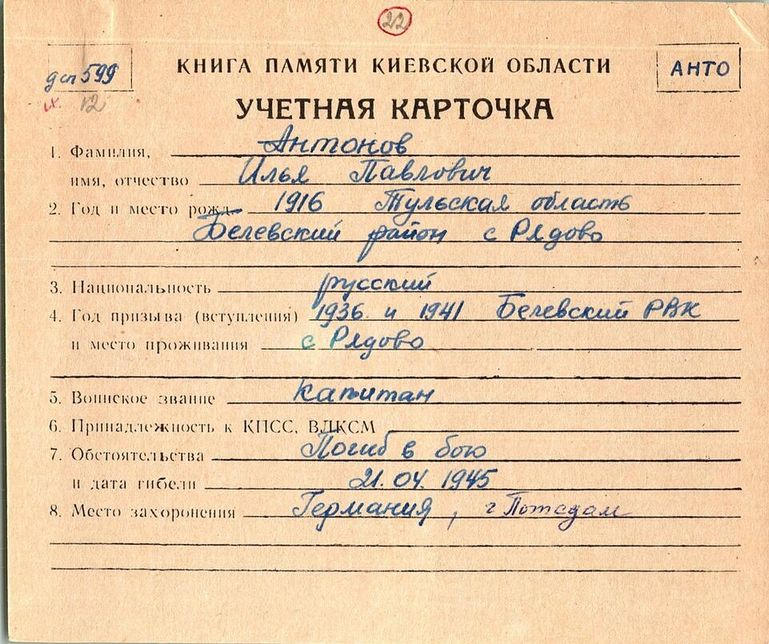 22
дсп 599
12
КНИГА ПАМЯТИ КИЕВСКОЙ ОБЛАСТИ
АНТО
УЧЕТНАЯ КАРТОЧКА
1. Фамилия, Антонов
имя, отчество Илья Павлович
2. Год и место рожд. 1916 Тульская область
Белевский район с Рядово
3. Национальность русский
4. Год призыва (вступления) 1936 и 1941 Белевский РВК
и место проживания с Рядово
5. Воинское звание капитан
6. Принадлежность к КПСС, ВЛКСМ
7. Обстоятельства Погиб в бою
и дата гибели 21.04.1945
8. Место захоронения Германия, г Потсдам